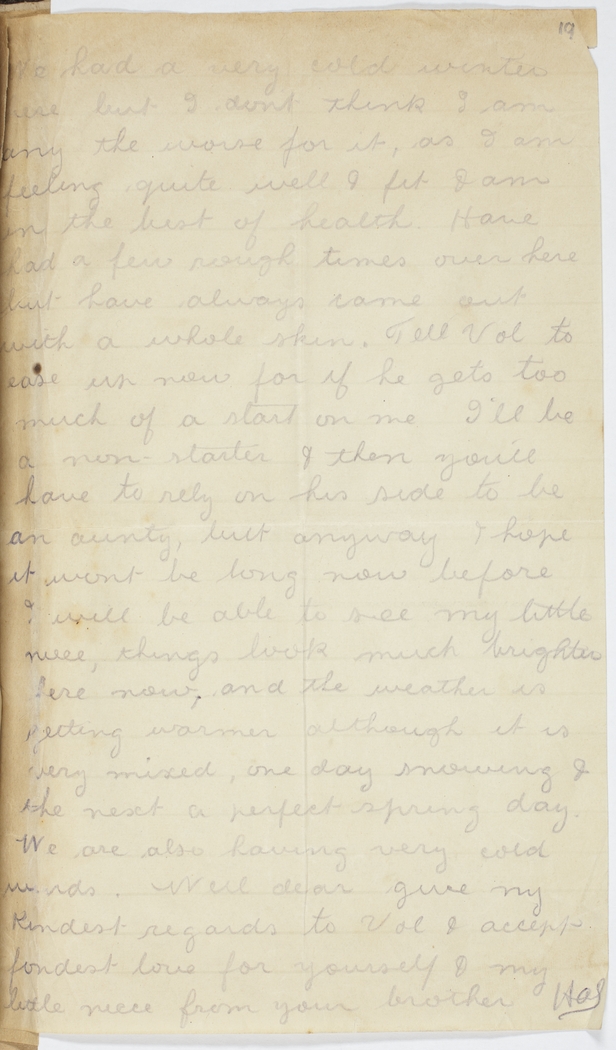 19
We had a very cold winter
here but I dont think I am
any the worse for it, as I am
feeling quite well & fit & am
in the best of health. Have
had a few rough times over here
but have always come out
with a whole skin. Tell Vol to
ease up now for if he gets too
much of a start on me I'll be
a non-starter & then you'll
have to rely on his side to be
an aunty, but anyway I hope
it wont be long now before
I will be able to see my little
niece, things look much brighter
here now, and the weather is
getting warmer although it is
very mixed, one day snowing &
the next a perfect spring day.
We are also having very cold
winds. Well dear give my
kindest regards to Vol & accept
fondest love for yourself & my
little niece from your brother Hal